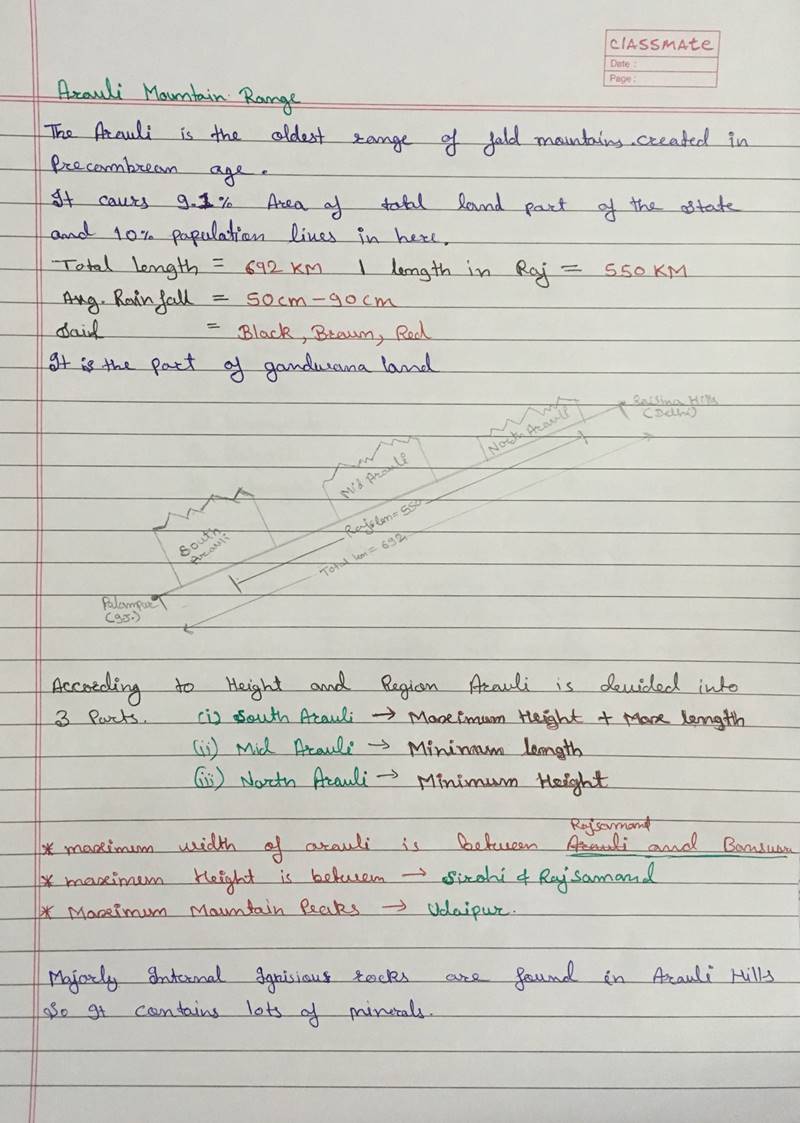 CLASSMATE
Date :
Page :
Arauli Mountain Range
The Arauli is the oldest range of fold mountains created in
Precambrean age.
It caurs 9.1% Area of total land part of the state
and 10% papulation lines in here.
Total length = 692 KM | length in Raj = 550 KM
Avg. Rainfall = 50cm - 90cm
Soil = Black, Braun, Red
It is the part of gandwana land
Raisina Hills
(Delhi)
North Arauli
Mid Arauli
South
Arauli
Raj = 550
Total km = 692
Palampur
(GJ.)
According to Height and Region Arauli is devided into
3 Parts. (i) South Arauli → Maximum Height + Max length
(ii) Mid Arauli → Minimum length
(iii) North Arauli → Minimum Height
Rajsamand
* maximum width of arauli is between Arauli and
* maximum Height is between → Sirohi & Rajsamand
* Maximum Mountain Peaks → Udaipur.
Majorly Internal Ignisious rocks are found in Arauli Hills
So It contains lots of minerals.